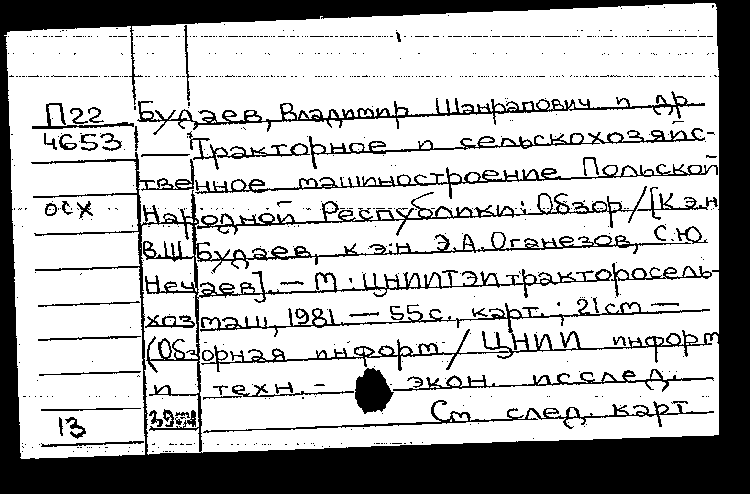 П22 Будаев, Владимир Шанрапович и др
4653 Тракторное и сельскохозяйс-
твенное машиностроение Польской
осх Народной Республики: Обзор / [К э.н
В.Ш Будаев, к э.н Э.А. Оганезов, С.Ю.
Нечаев]. — М : ЦНИИТЭИтракторосель-
хозмаш, 1981. — 55 с., карт. ; 21 см —
(Обзорная информ. / ЦНИИ информ
и техн. - экон. исслед.
13 См след. карт